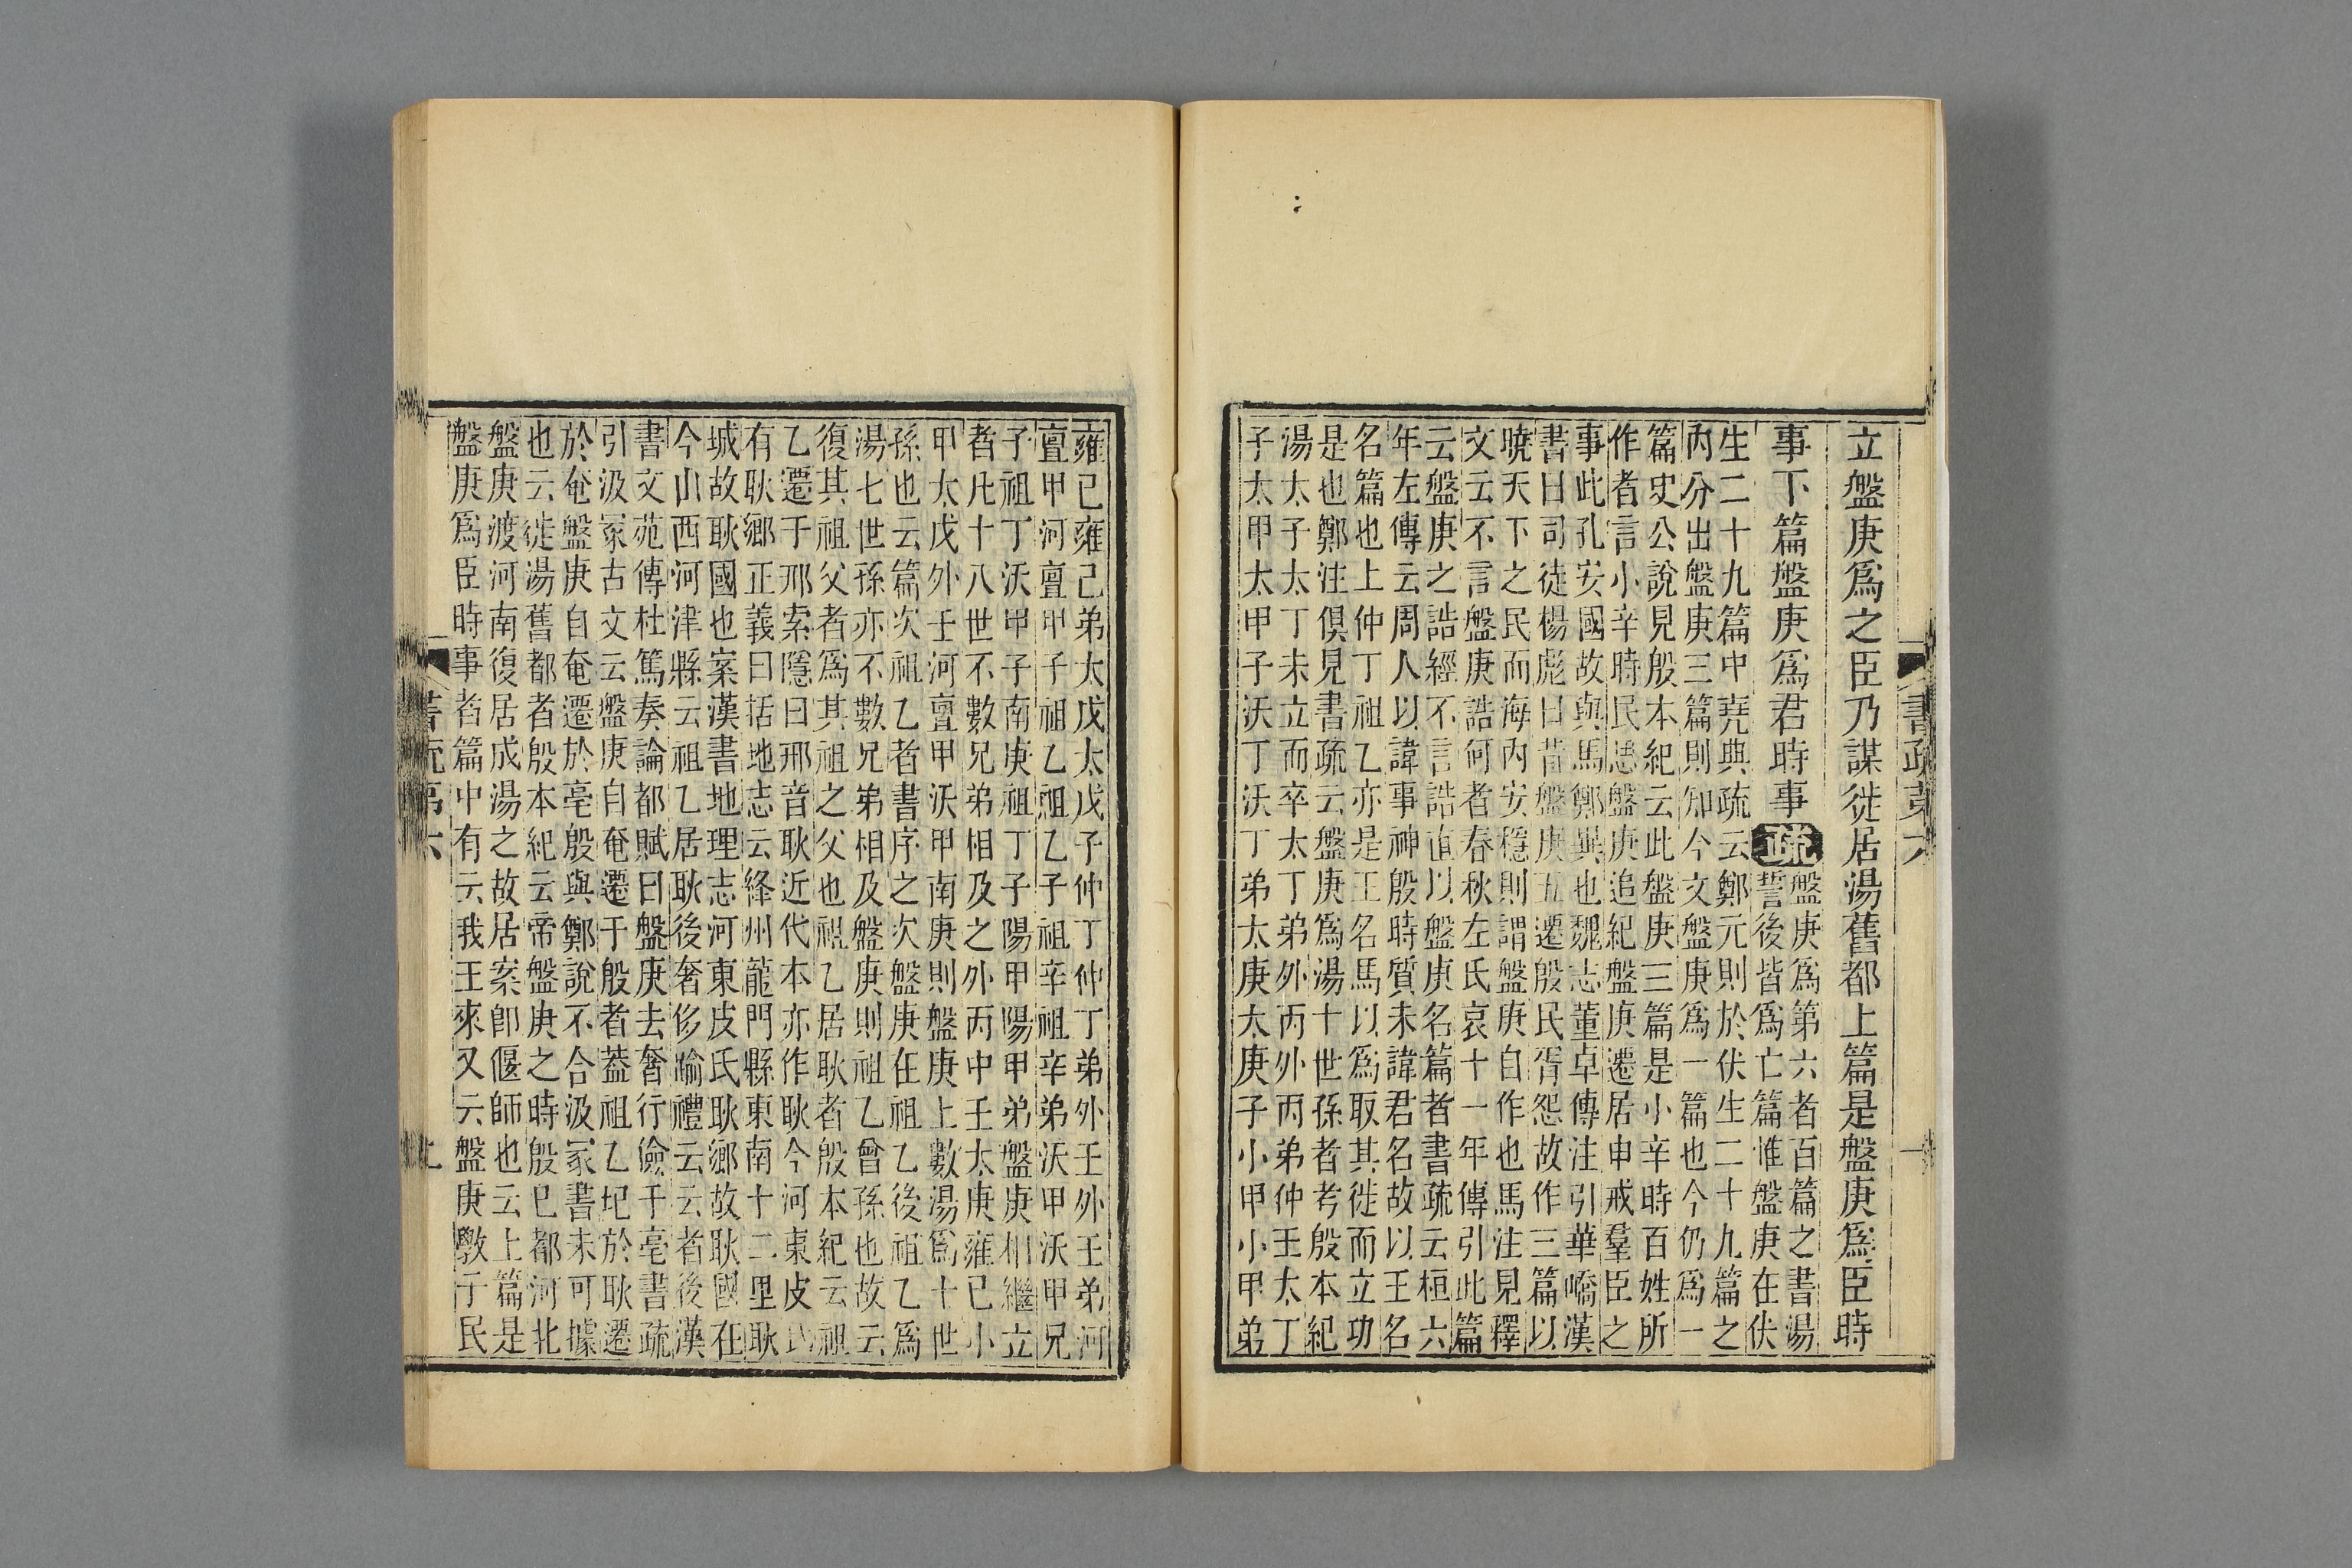 立盤庚爲之臣乃謀徙居湯舊都上篇是盤庚爲臣時
事下篇盤庚爲君時事疏
盤庚爲第六者百篇之書湯
誓後皆爲亡篇惟盤庚在伏
生二十九篇中堯典疏云鄭元則於伏生二十九篇之
內分出盤庚三篇則知今文盤庚爲一篇也今仍爲一
篇史公說見殷本紀云此盤庚三篇是小辛時百姓所
作者言小辛時民思盤庚追紀盤庚遷居申戒羣臣之
事此孔安國故與馬鄭異也魏志董卓傳注引華嶠漢
書曰司徒楊彪曰昔盤庚五遷殷民胥怨故作三篇以
曉天下之民而海內安穩則謂盤庚自作也馬注見釋
文云不言盤庚誥何者春秋左氏哀十一年傳引此篇
云盤庚之誥經不言誥直以盤庚名篇者書疏云桓六
年左傳云周人以諱事神殷時質未諱君名故以王名
名篇也上仲丁祖乙亦是王名馬以爲取其徙而立功
是也鄭注俱見書疏云盤庚爲湯十世孫者考殷本紀
湯太子太丁未立而卒太丁弟外丙外丙弟仲壬太丁
子太甲太甲子沃丁沃丁弟太庚太庚子小甲小甲弟
雍己雍己弟太戊太戊子仲丁仲丁弟外壬外壬弟河
亶甲河亶甲子祖乙祖乙子祖辛祖辛弟沃甲沃甲兄
子祖丁沃甲子南庚祖丁子陽甲陽甲弟盤庚相繼立
者凡十八世不數兄弟相及之外丙中壬太庚雍已小
甲太戊外壬河亶甲沃甲南庚則盤庚上數湯爲十世
孫也云篇次祖乙者書序之次盤庚在祖乙後祖乙爲
湯七世孫亦不數兄弟相及盤庚則祖乙曾孫也故云
復其祖父者爲其祖之父也祖乙居耿者殷本紀云祖
乙遷于邢索隱曰邢音耿近代本亦作耿今河東皮氏
有耿鄉正義曰括地志云絳州龍門縣東南十二里耿
城故耿國也案漢書地理志河東皮氏耿鄉故耿國在
今山西河津縣云祖乙居耿後奢侈踰禮云云者後漢
書文苑傳杜篤奏論都賦曰盤庚去奢行儉于亳書疏
引汲冢古文云盤庚自奄遷于殷者葢祖乙圯於耿遷
於奄盤庚自奄遷於亳殷與鄭說不合汲冢書未可據
也云徙湯舊都者殷本紀云帝盤庚之時殷已都河北
盤庚渡河南復居成湯之故居案卽偃師也云上篇是
盤庚爲臣時事者篇中有云我王來又云盤庚斆于民
書疏第六